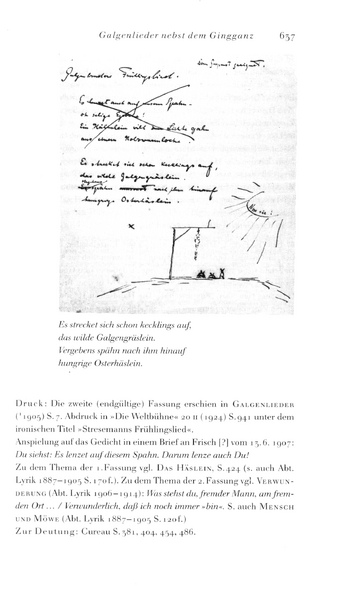 Galgenlieder nebst dem Gingganz 637
Galgenbruders Frühlingslied.
Es lenzet auch auf unserm Spahn,
oh selige Epoche!
Ein Hälmlein will zum Lichte gahn
aus einem Holzwurmloche.
Es strecket sich schon kecklings auf,
das wilde Galgengräslein.
Vergebens spähn nach ihm hinauf
hungrige Osterhäslein.
Es strecket sich schon kecklings auf,
das wilde Galgengräslein.
Vergebens spähn nach ihm hinauf
hungrige Osterhäslein.
Druck: Die zweite (endgültige) Fassung erschien in GALGENLIEDER
(¹1905) S. 7. Abdruck in »Die Weltbühne« 20 II (1924) S. 941 unter dem
ironischen Titel »Stresemanns Frühlingslied«.
Anspielung auf das Gedicht in einem Brief an Frisch [?] vom 15. 6. 1907:
Du siehst: Es lenzet auf diesem Spahn. Darum lenze auch Du!
Zu dem Thema der 1. Fassung vgl. DAS HÄSLEIN, S. 424 (s. auch Abt.
Lyrik 1887–1905 S. 170 f.). Zu dem Thema der 2. Fassung vgl. VERWUN-
DERUNG (Abt. Lyrik 1906–1914): Was stehst du, fremder Mann, am frem-
den Ort ... / Verwunderlich, daß ich noch immer »bin«. S. auch MENSCH
UND MÖWE (Abt. Lyrik 1887–1905 S. 120 f.)
Zur Deutung: Cureau S. 381, 404, 454, 486.